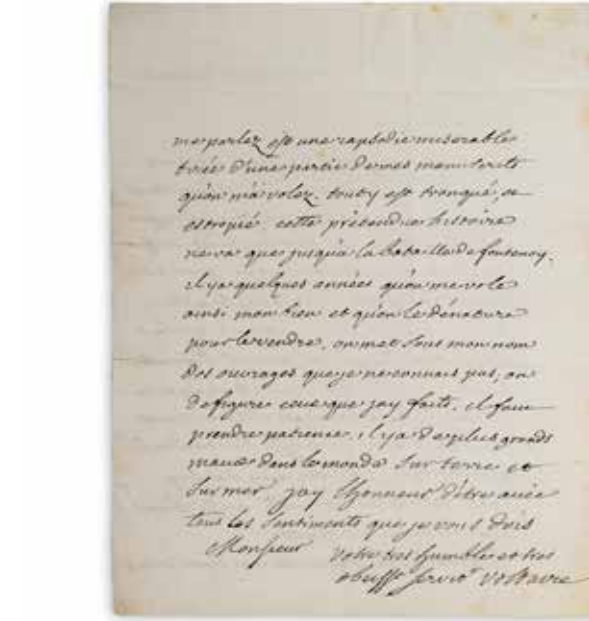 me parlez est une rapsodie miserable
tirée d'une partie de mes manuscrits
qu'on m'a volez. tout y est tronqué, et
estropié. cette prétendue histoire
ne va que jusqu'a la bataille de fontenoy.
il y a quelques années qu'on me vole
ainsi mon bien et qu'on le dénature
pour le vendre. on met sous mon nom
des ouvrages que je ne connais pas, on
defigure ceux que jay faits. il faut
prendre patience, il y a de plus grands
maux dans le monde sur terre et
sur mer. jay l'honneur d'être avec
tous les sentiments que je vous dois
Monsieur votre tres humble et tres
obeisst servitr Voltaire